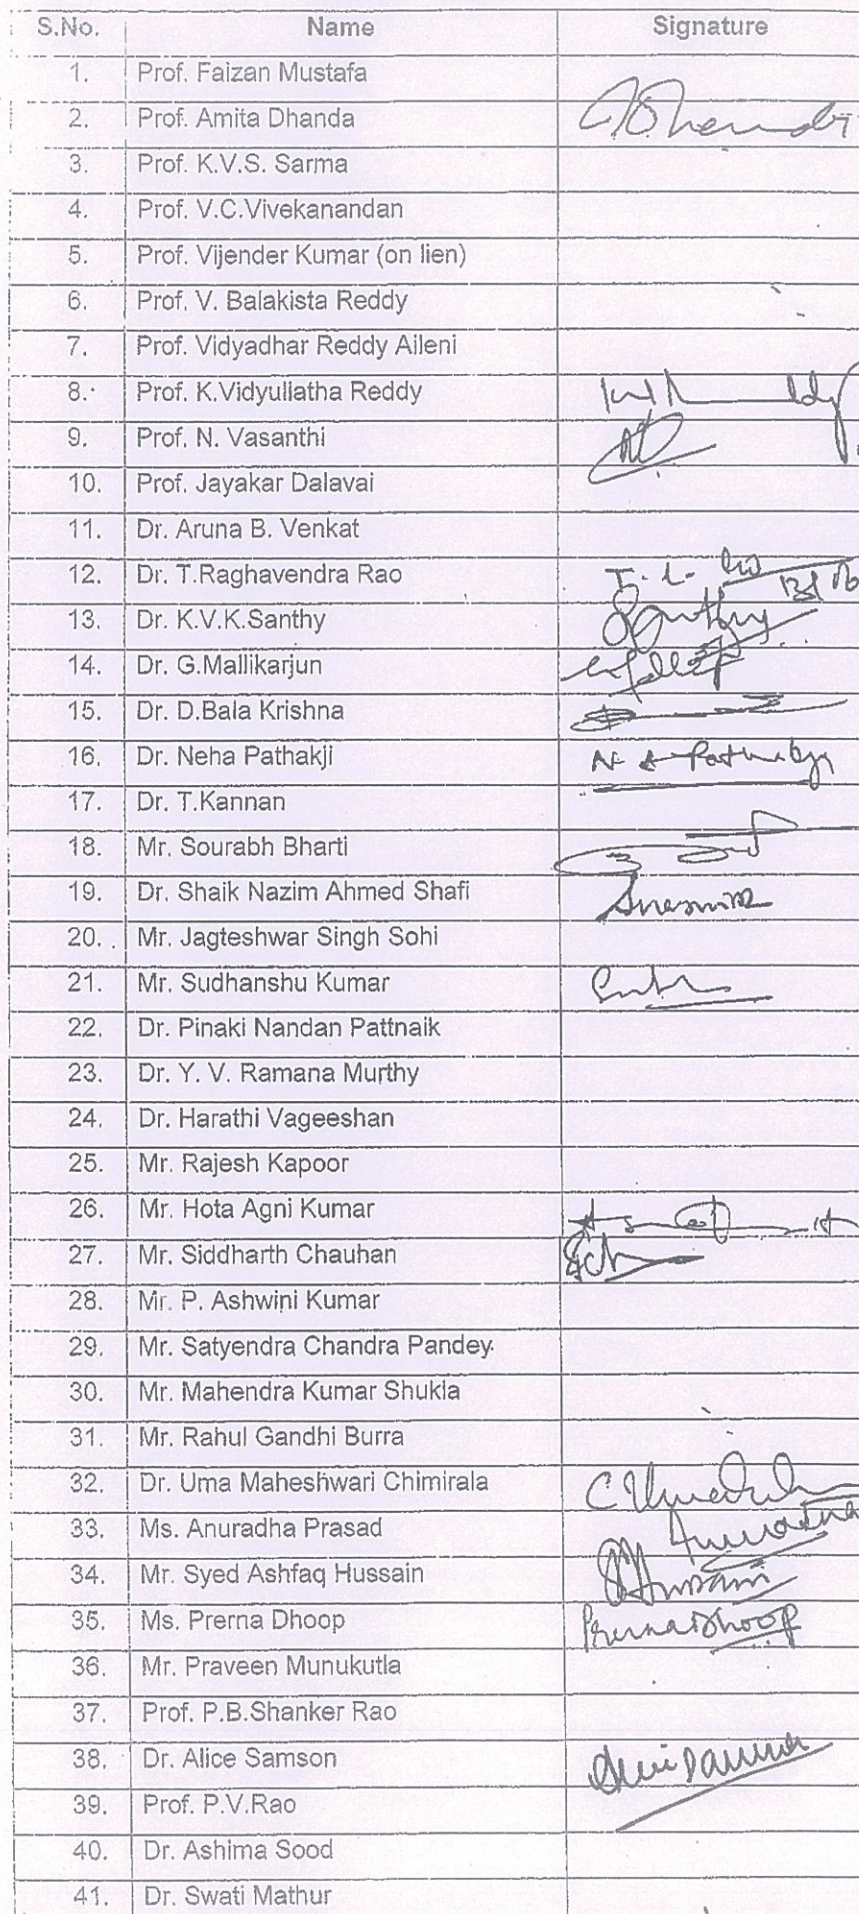 S.No. Name Signature
1. Prof. Faizan Mustafa
2. Prof. Amita Dhanda
3. Prof. K.V.S. Sarma
4. Prof. V.C.Vivekanandan
5. Prof. Vijender Kumar (on lien)
6. Prof. V. Balakista Reddy
7. Prof. Vidyadhar Reddy Aileni
8. Prof. K.Vidyullatha Reddy
9. Prof. N. Vasanthi
10. Prof. Jayakar Dalavai
11. Dr. Aruna B. Venkat
12. Dr. T.Raghavendra Rao
13. Dr. K.V.K.Santhy Santhy
14. Dr. G.Mallikarjun
15. Dr. D.Bala Krishna
16. Dr. Neha Pathakji
17. Dr. T.Kannan
18. Mr. Sourabh Bharti
19. Dr. Shaik Nazim Ahmed Shafi
20. Mr. Jagteshwar Singh Sohi
21. Mr. Sudhanshu Kumar
22. Dr. Pinaki Nandan Pattnaik
23. Dr. Y. V. Ramana Murthy
24. Dr. Harathi Vageeshan
25. Mr. Rajesh Kapoor
26. Mr. Hota Agni Kumar
27. Mr. Siddharth Chauhan
28. Mr. P. Ashwini Kumar
29. Mr. Satyendra Chandra Pandey
30. Mr. Mahendra Kumar Shukla
31. Mr. Rahul Gandhi Burra
32. Dr. Uma Maheshwari Chimirala
33. Ms. Anuradha Prasad
34. Mr. Syed Ashfaq Hussain
35. Ms. Prerna Dhoop Prerna Dhoop
36. Mr. Praveen Munukutla
37. Prof. P.B.Shanker Rao
38. Dr. Alice Samson
39. Prof. P.V.Rao
40. Dr. Ashima Sood
41. Dr. Swati Mathur